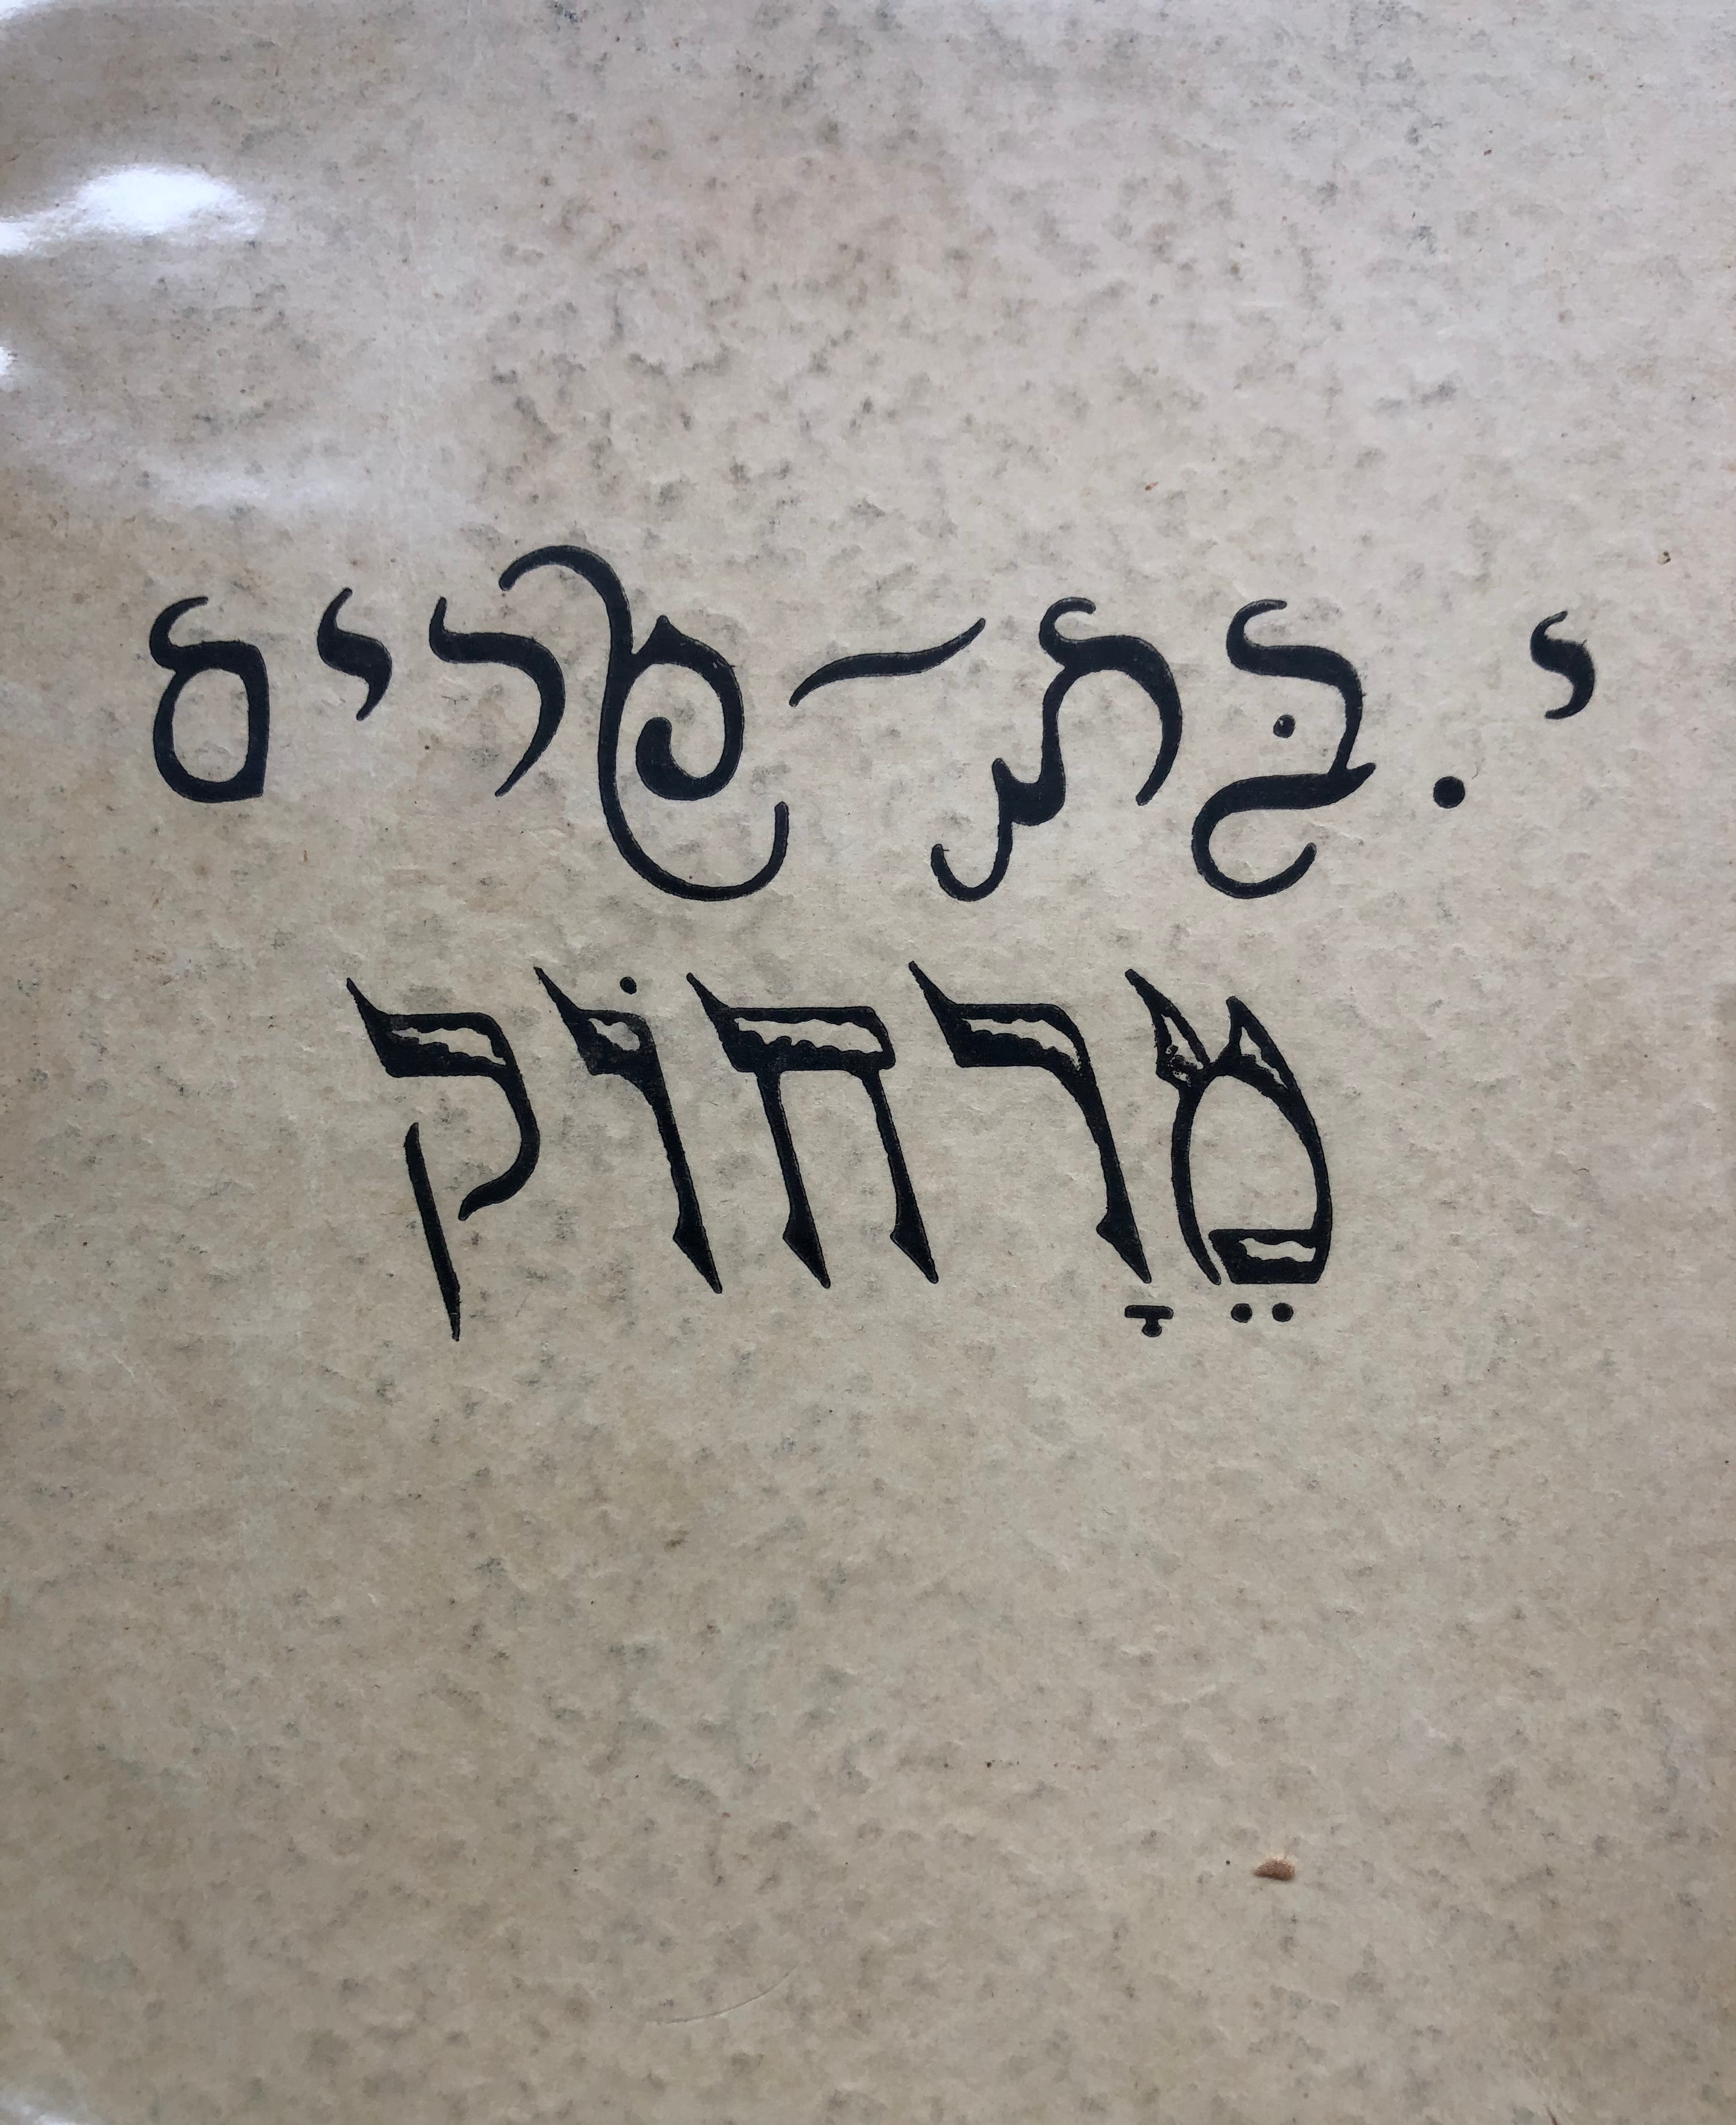 י. בּת-מרים
מֵרָחוֹק